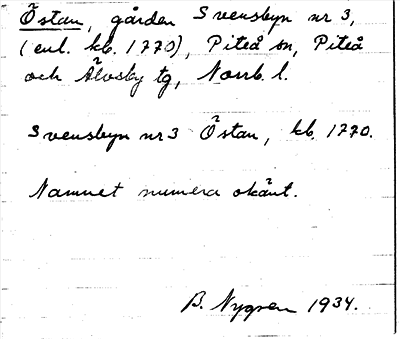 Östan, gården Svensbyn nr 3,
(enl. kb. 1770), Piteå sn, Piteå
och Älvsby tg, Norrb. l.
Svensbyn nr 3 Östan, kb. 1770.
Namnet numera okänt.
B. Nygren 1934.